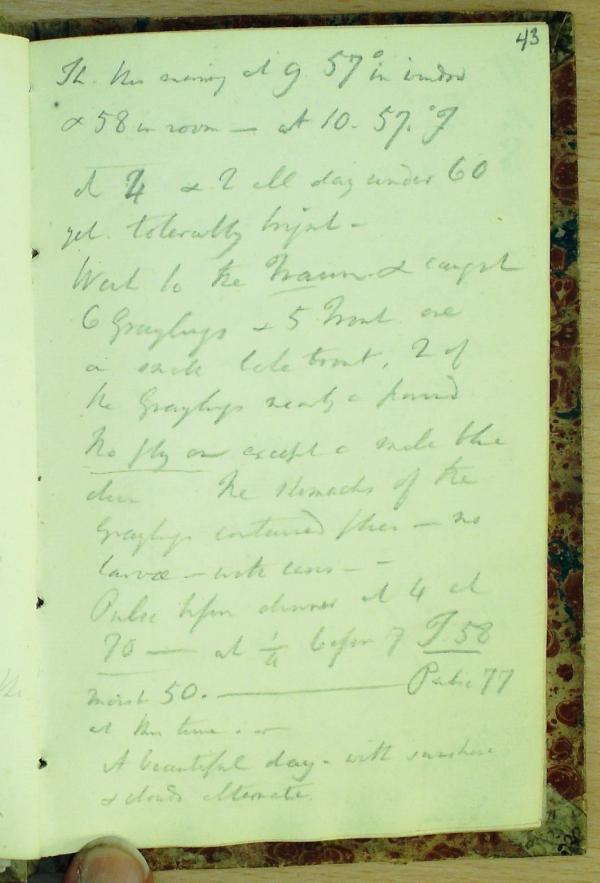 43
Th. this morning at 9. 57° in window
& 58 in room — at 10. 57.° F
at 4 & 2 all day under 60
yet tolerably bright —
Went to the Traun & caught
6 Graylings & 5 Trout one
a small lake trout, 2 of
the Graylings nearly a pound
No fly on except a small blue
dun The stomachs of the
Graylings contained flies — no
larvæ — with cases — –
Pulse before dinner at 4 at
70 — at 1/4 before 7 T. 58
moist 50. ——— Pulse 77
at this time. —
A beautiful day. with sunshine
& clouds alternate.